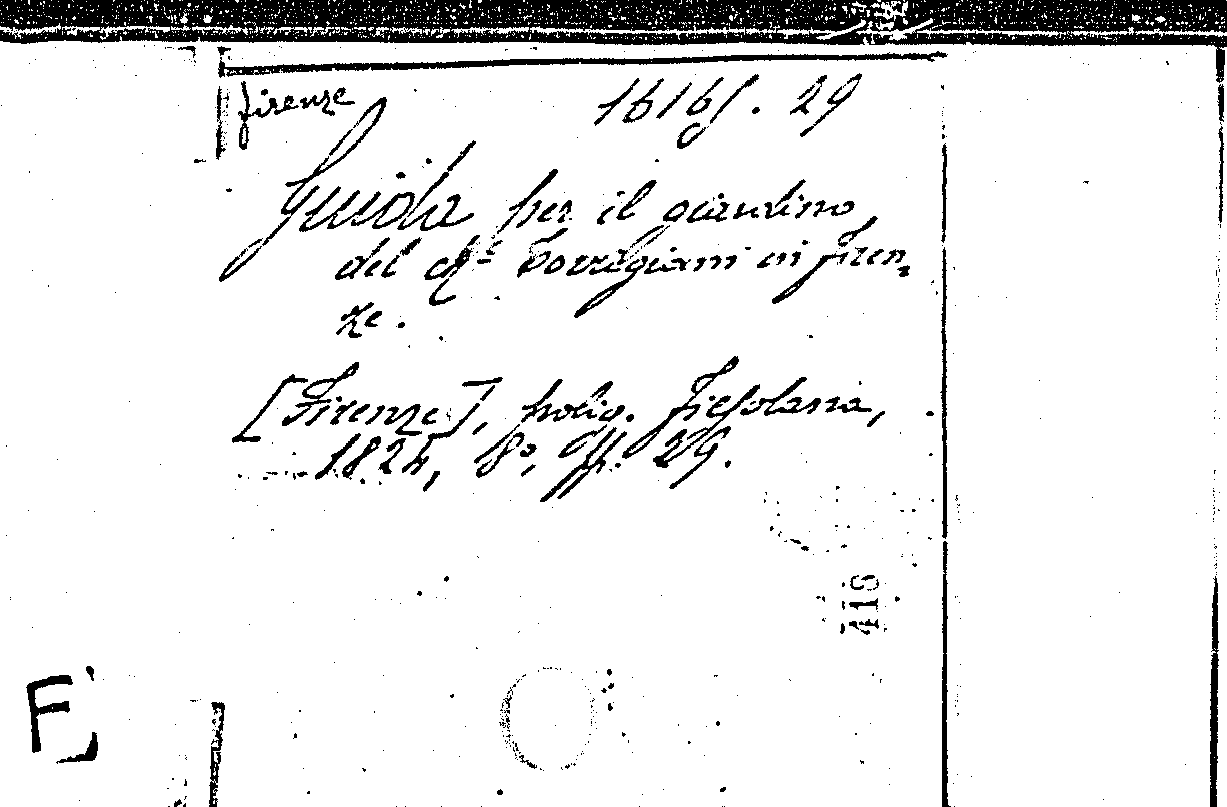 firenze
16165. 29
Guida per il giardino
del Mse Torrigiani in Firen-
ze.
[Firenze], polig. Fiesolana,
1824, 8º, pp. 29.
418
F